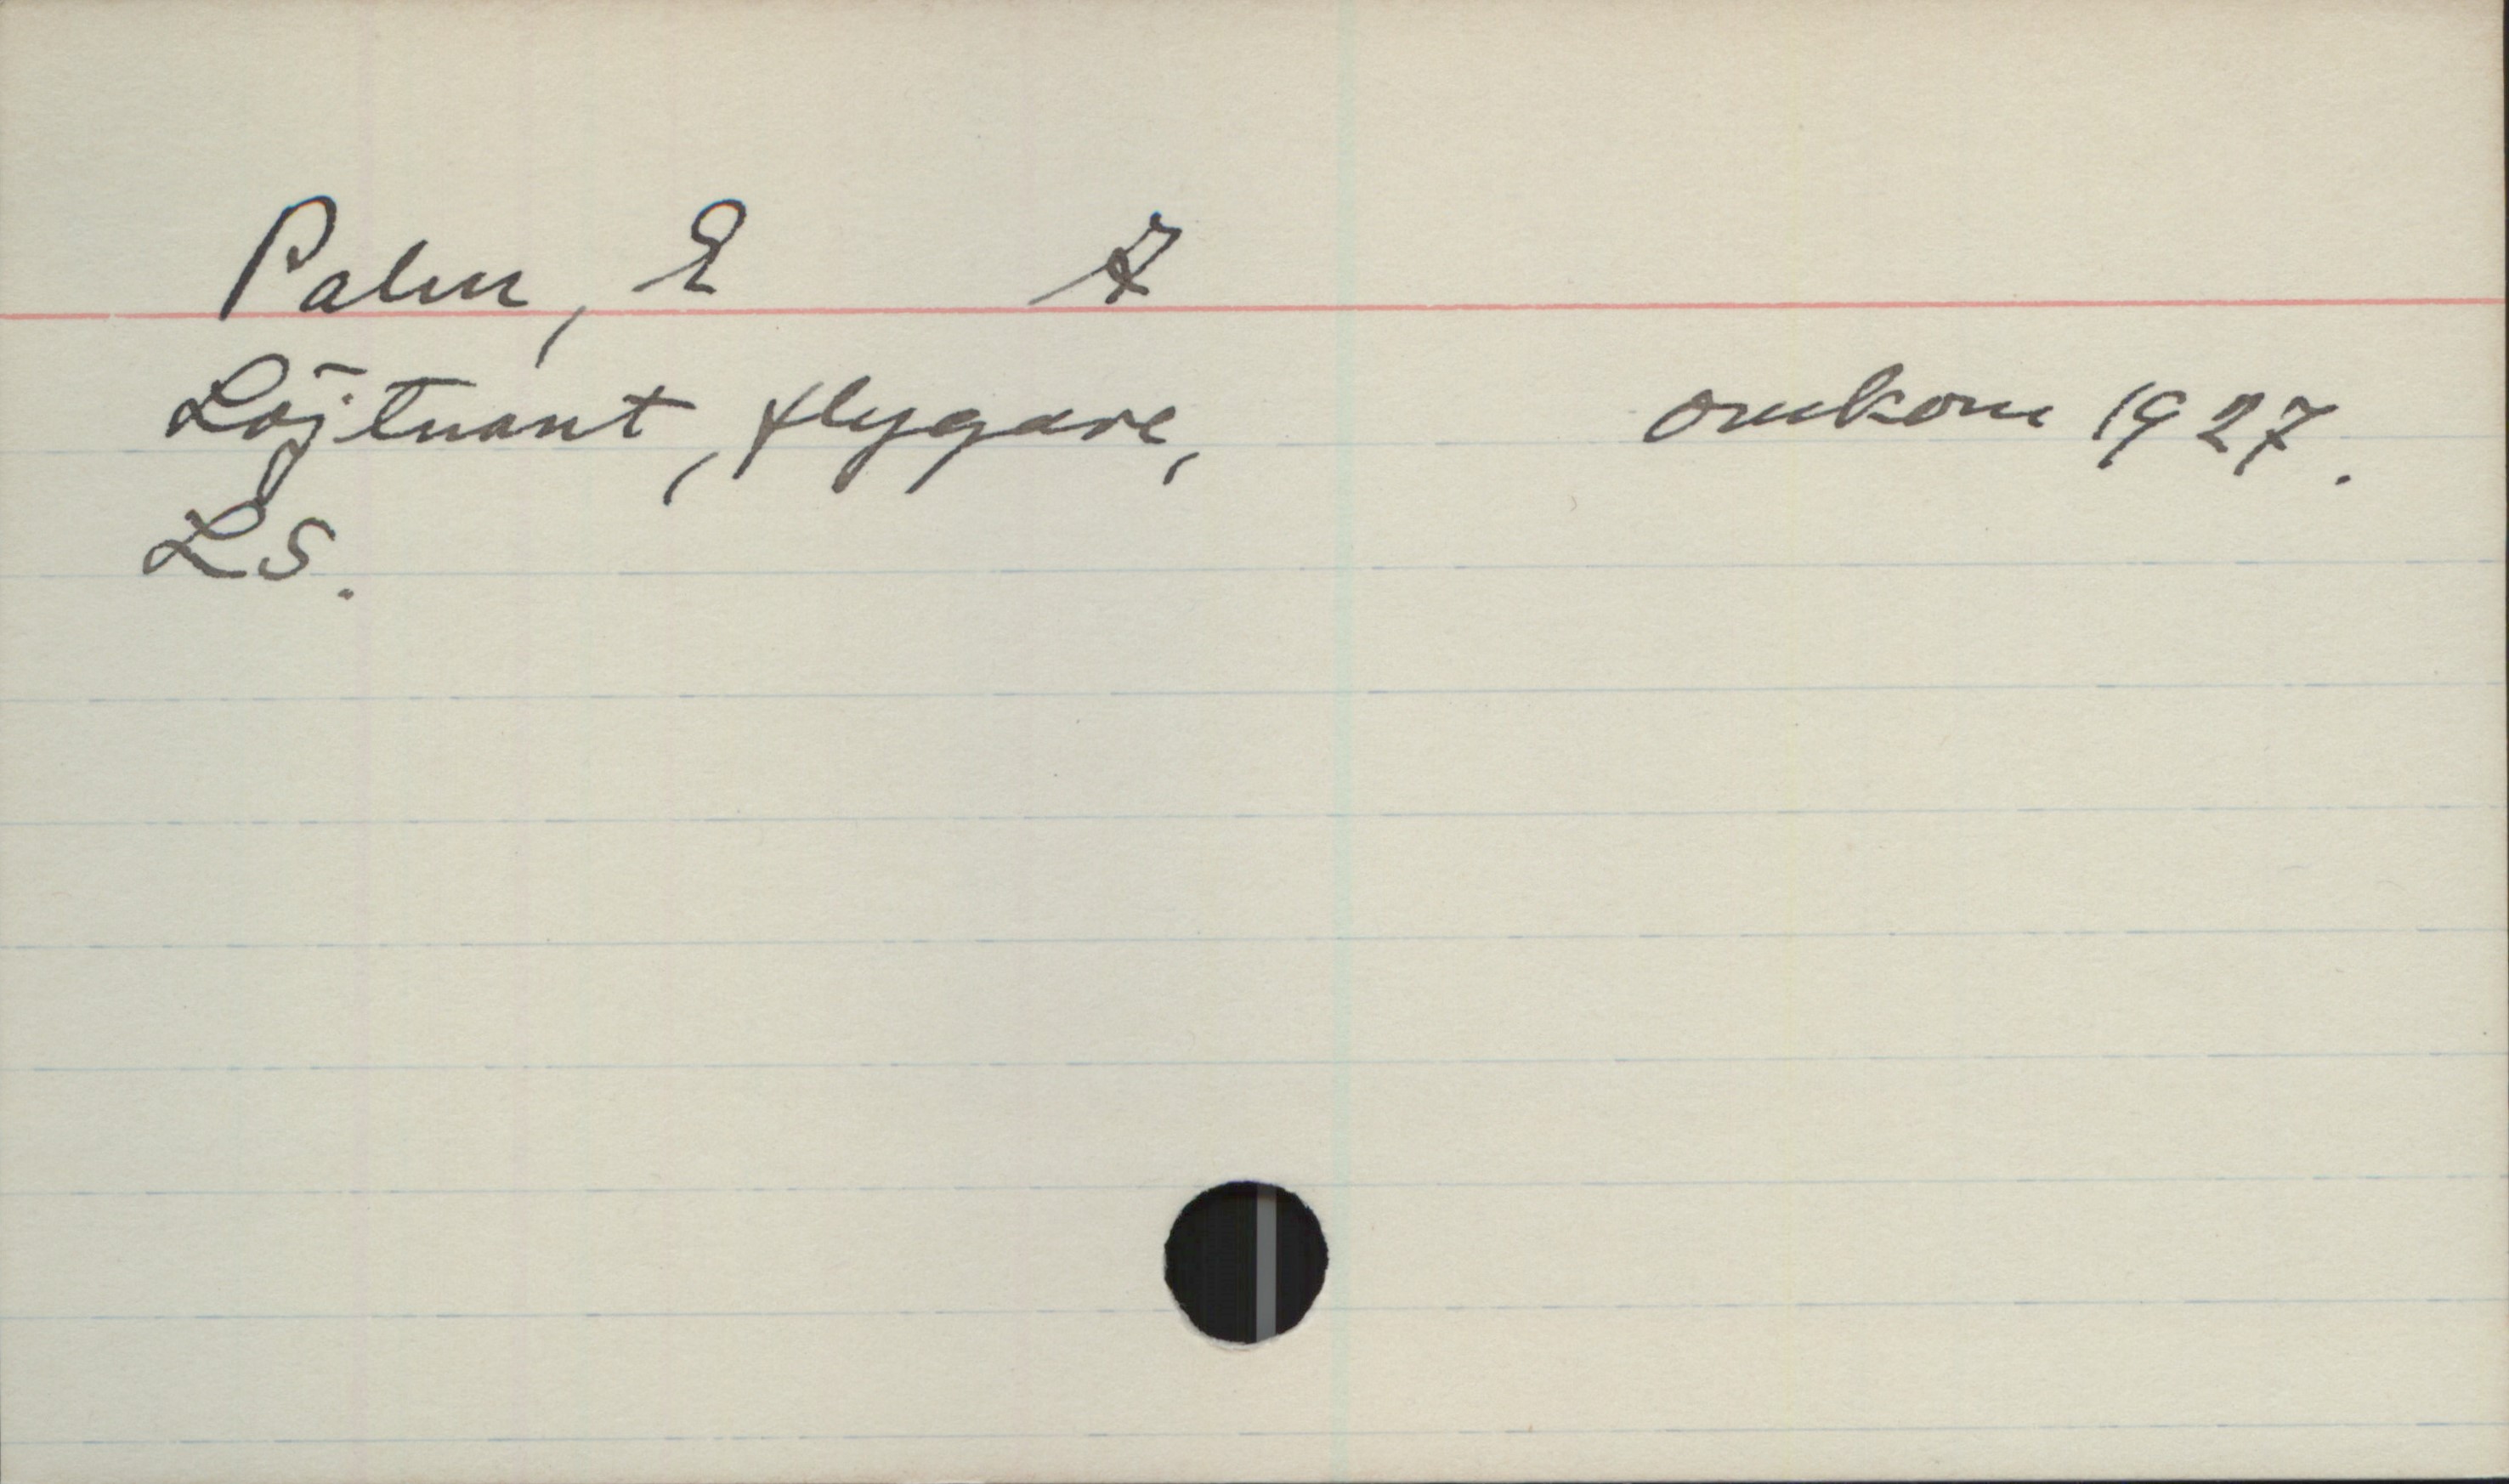 Palm, E
Löjtnant, flygare, omkom 1927.
LS.